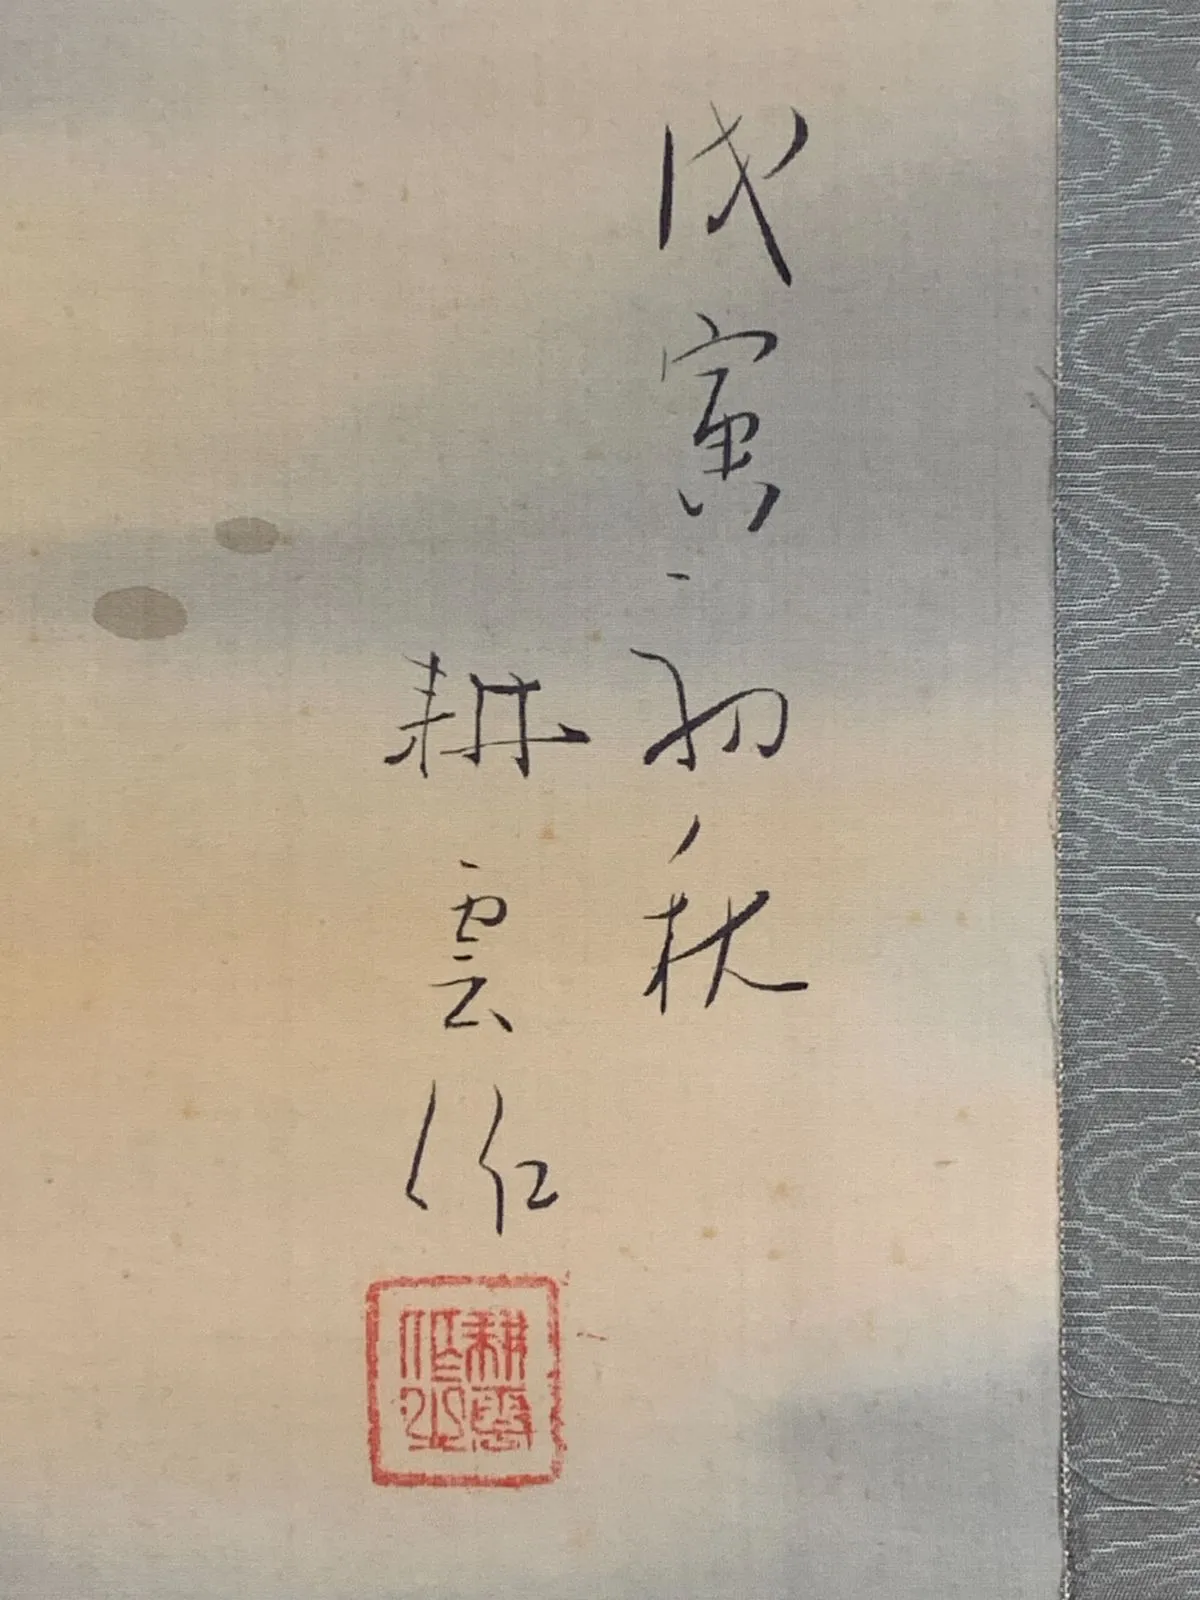 戊寅初秋
耕雲作
耕雲